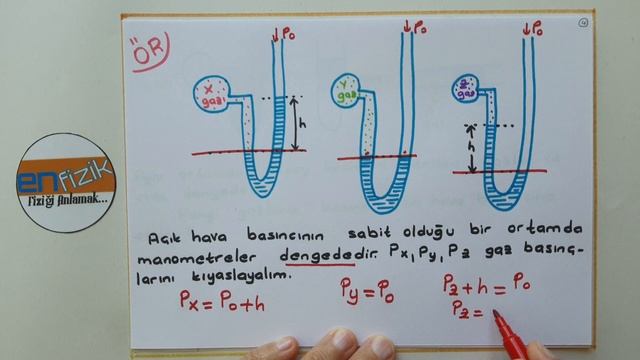 ÖR
↓P₀
↓P₀
↓P₀
X gaz
Y gaz
Z gaz
h
h
enfizik
Fiziği Anlamak...
Açık hava basıncının sabit olduğu bir ortamda
manometreler dengededir. Pₓ, Pᵧ, P_z gaz basınç-
larını kıyaslayalım.
Pₓ = P₀+h
Pᵧ = P₀
P_z + h = P₀
P_z =